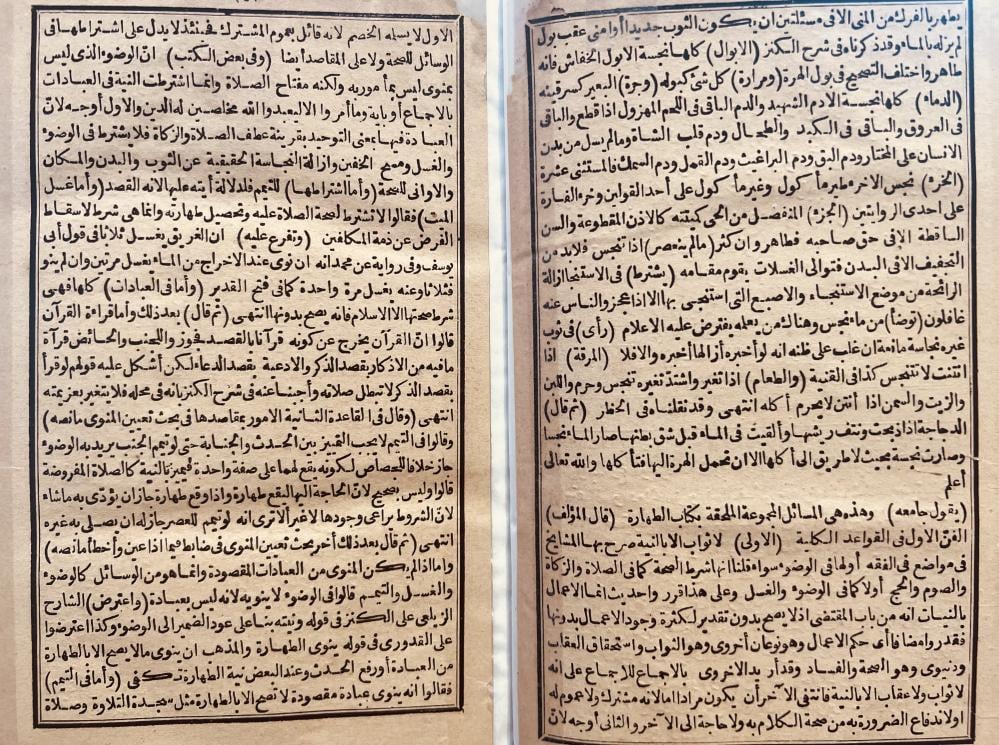 يطهر بالفرك من المنى الا في مسئلتين ان يكون الثوب جديدا أو امنى عقب بول
لم يزله بالماء وقد ذكرناه في شرح الكنز (الابوال) كلها نجسة الا بول الخفاش فانه
طاهر واختلف التصحيح في بول الهرة (ومرارة) كل شئ كبوله (وجرة) البعير كسرقينه
(الدماء) كلها نجسة الا دم الشهيد والدم الباقى في اللحم المهزول اذا قطع والباقى
فى العروق والباقى فى الكبد والطحال ودم قلب الشاة وما لم يسل من بدن
الانسان على المختار ودم البق ودم البراغيث ودم القمل ودم السمك فالمستثنى عشرة
(الخرء) نجس الا خرء طير مأكول وغير مأكول على أحد القولين وخرء الفارة
على احدى الروايتين (الجزء) المنفصل من الحى كميتته كالاذن المقطوعة والسن
الساقطة الا فى حق صاحبه فطاهر وان كثر (ما لم ينعصر) اذا تنجس فلابد من
التجفيف الا فى البدن فتوالى الغسلات يقوم مقامه (يشترط) فى الاستنجاء ازالة
الرائحة من موضع الاستنجاء والاصبع التى استنجى بها الا اذا عجز والناس عنه
غافلون (توضأ) من ماء نجس وهناك من يعلمه يفترض عليه الاعلام (رأى) فى ثوب
غيره نجاسة مانعة ان غلب على ظنه انه لو أخبره أزالها أخبره والا فلا (المرقة) اذا
انتنت لا تتنجس كذا فى القنية (والطعام) اذا تغير واشتد تغيره تنجس وحرم واللبن
والزيت والسمن اذا أنتن لا يحرم أكله انتهى وقد نقلناه فى الحظر (ثم قال)
الدجاجة اذا ذبحت ونتف ريشها وألقيت فى الماء قبل شق بطنها صار الماء نجسا
وصارت نجسة بحيث لا طريق الى أكلها الا ان تحمل الهرة اليها فتأكلها والله تعالى
أعلم
(يقول جامعه) وهذه هى المسائل المجموعة الملحقة بكتاب الطهارة (قال المؤلف)
الفن الاول فى القواعد الكلية (الاولى) لا ثواب الا بالنية صرح بها المشايخ
فى مواضع فى الفقه أولها فى الوضوء سواء قلنا انها شرط الصحة كما فى الصلاة والزكاة
والصوم والحج أولا كما فى الوضوء والغسل وعلى هذا قرروا حديث انما الاعمال
بالنيات انه من باب المقتضى اذ لا يصح بدون تقدير لكثرة وجود الاعمال بدونها
فقدروا مضافا أى حكم الاعمال وهو نوعان أخروى وهو الثواب واستحقاق العقاب
ودنيوى وهو الصحة والفساد وقد أريد الاخروى بالاجماع للاجماع على انه
لا ثواب ولا عقاب الا بالنية فانتفى الآخر أن يكون مرادا اما لانه مشترك ولا عموم له
اولاندفاع الضرورة به من صحة الكلام به ولا حاجة الى الآخر والثانى أوجه لان
الاول لا يسلمه الخصم لانه قائل بعموم المشترك فحينئذ لا يدل على اشتراطها فى
الوسائل للصحة ولا على المقاصد أيضا (وفى بعض الكتب) ان الوضوء الذى ليس
بمنوى ليس بمأمور به ولكنه مفتاح الصلاة وانما اشترطت النية فى العبادات
بالاجماع أو بآية وما أمروا الا ليعبدوا الله مخلصين له الدين والاول أوجه لان
العبادة فيها بمعنى التوحيد بقرينة عطف الصلاة والزكاة فلا يشترط فى الوضوء
والغسل ومسح الخفين وازالة النجاسة الحقيقية عن الثوب والبدن والمكان
والاوانى للصحة (وأما اشتراطها) للتيمم فلدلالة أيته عليها لانه القصد (وأما غسل
الميت) فقالوا لا تشترط لصحة الصلاة عليه وتحصيل طهارته وانما هى شرط لاسقاط
الفرض عن ذمة المكلفين (وتفرع عليه) ان الغريق يغسل ثلاثا فى قول أبى
يوسف وفى رواية عن محمد انه ان نوى عند الاخراج من الماء يغسل مرتين وان لم ينو
فثلاثا وعنه يغسل مرة واحدة كما فى فتح القدير (وأما فى العبادات) كلها فهى
شرط صحتها الا الاسلام فانه يصح بدونها انتهى (ثم قال) بعد ذلك وأما قراءة القرآن
قالوا ان القرآن يخرج عن كونه قرآنا بالقصد فجوزوا للجنب والحائض قرآة
ما فيه من الاذكار بقصد الذكر والادعية بقصد الدعاء لكن أشكل عليه قولهم لو قرأ
بقصد الذكر لا تبطل صلاته وأجبنا عنه فى شرح الكنز بانه فى محله فلا يتغير بعزيمته
انتهى (وقال فى القاعدة الثانية الامور بمقاصدها فى بحث تعيين المنوى ما نصه)
وقالوا فى التيمم لا يجب التمييز بين الحدث والجنابة حتى لو تيمم الجنب يريد به الوضوء
جاز خلافا للجصاص لكونه يقع لهما على صفة واحدة فيميز بالنية كالصلاة المفروضة
قالوا وليس بصحيح لان الحاجة اليها ليقع طهارة واذا وقع طهارة جاز ان يؤدى به ما شاء
لان الشروط يراعى وجودها لا غير ألا ترى انه لو تيمم للعصر جاز له ان يصلى به غيره
انتهى (ثم قال بعد ذلك آخر بحث تعيين المنوى فى ضابط فيما اذا عين وأخطأ ما نصه)
وأما اذا لم يكن المنوى من العبادات المقصودة وانما هو من الوسائل كالوضوء
والغسل والتيمم قالوا فى الوضوء لا ينويه لانه ليس بعبادة (واعترض) الشارح
الزيلعى على الكنز فى قوله ونيته بنا على عود الضمير الى الوضوء وكذا اعترضوا
على القدورى فى قوله ينوى الطهارة والمذهب ان ينوى ما لا يصح الا بالطهارة
من العبادة أو رفع الحدث وعند البعض نية الطهارة تكفى (وأما فى التيمم)
فقالوا انه ينوى عبادة مقصودة لا تصح الا بالطهارة مثل سجدة التلاوة وصلاة